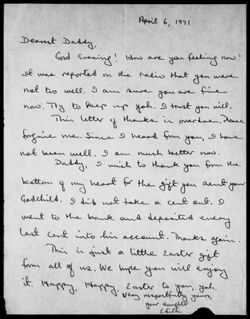 April 6, 1971
Dearest Daddy,
God Evening! How are you feeling now?
It was reported on the radio that you were
not too well. I am sure you are fine
now. Try to keep up yah. I trust you will.
This letter of thanks is overdue. Please
forgive me. Since I heard from you, I have
not been well. I am much better now.
Daddy, I wish to thank you from the
bottom of my heart for the gift you sent your
Godchild. I did not take a cent out. I
went to the bank and deposited every
last cent into his account. Thanks again.
This is just a little Easter gift
form all of us. We hope you will enjoy
it. Happy, Happy, Easter to you, yah.
Very respectfully yours,
your daughter